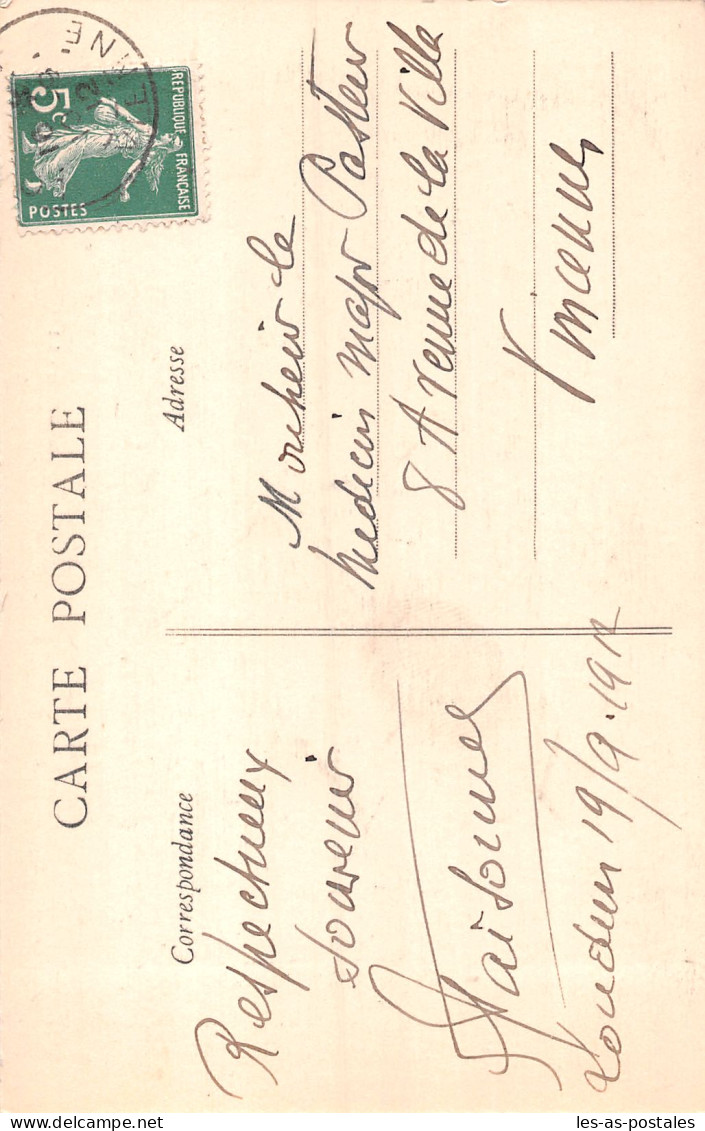 CARTE POSTALE
Correspondance
Respectueux
souvenir
Loudun 19/9.1912
Adresse
Monsieur le
Médecin major Pasteur
8 Avenue de la Ville
Vincennes
REPUBLIQUE FRANÇAISE
5c
POSTES
les-as-postales - delcampe.net